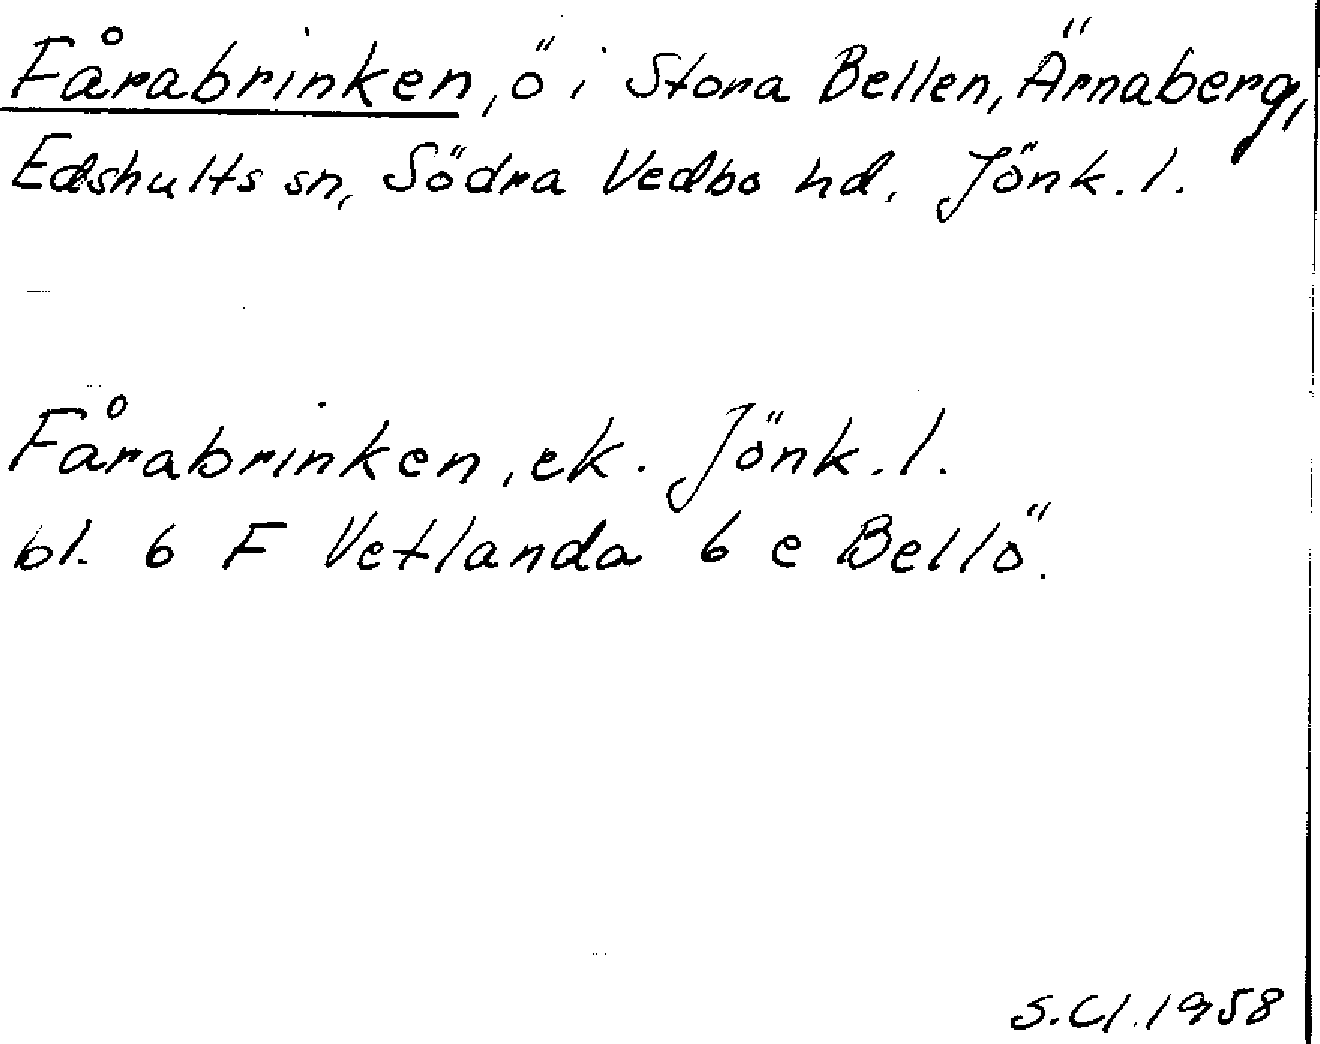 Fårabrinken, ö i Stora Bellen, Ärnaberg,
Edshults sn, Södra Vedbo hd. Jönk. l.
Fårabrinken, ek. Jönk. l.
bl. 6 F Vetlanda 6 e Bellö.
S.Cl. 1958